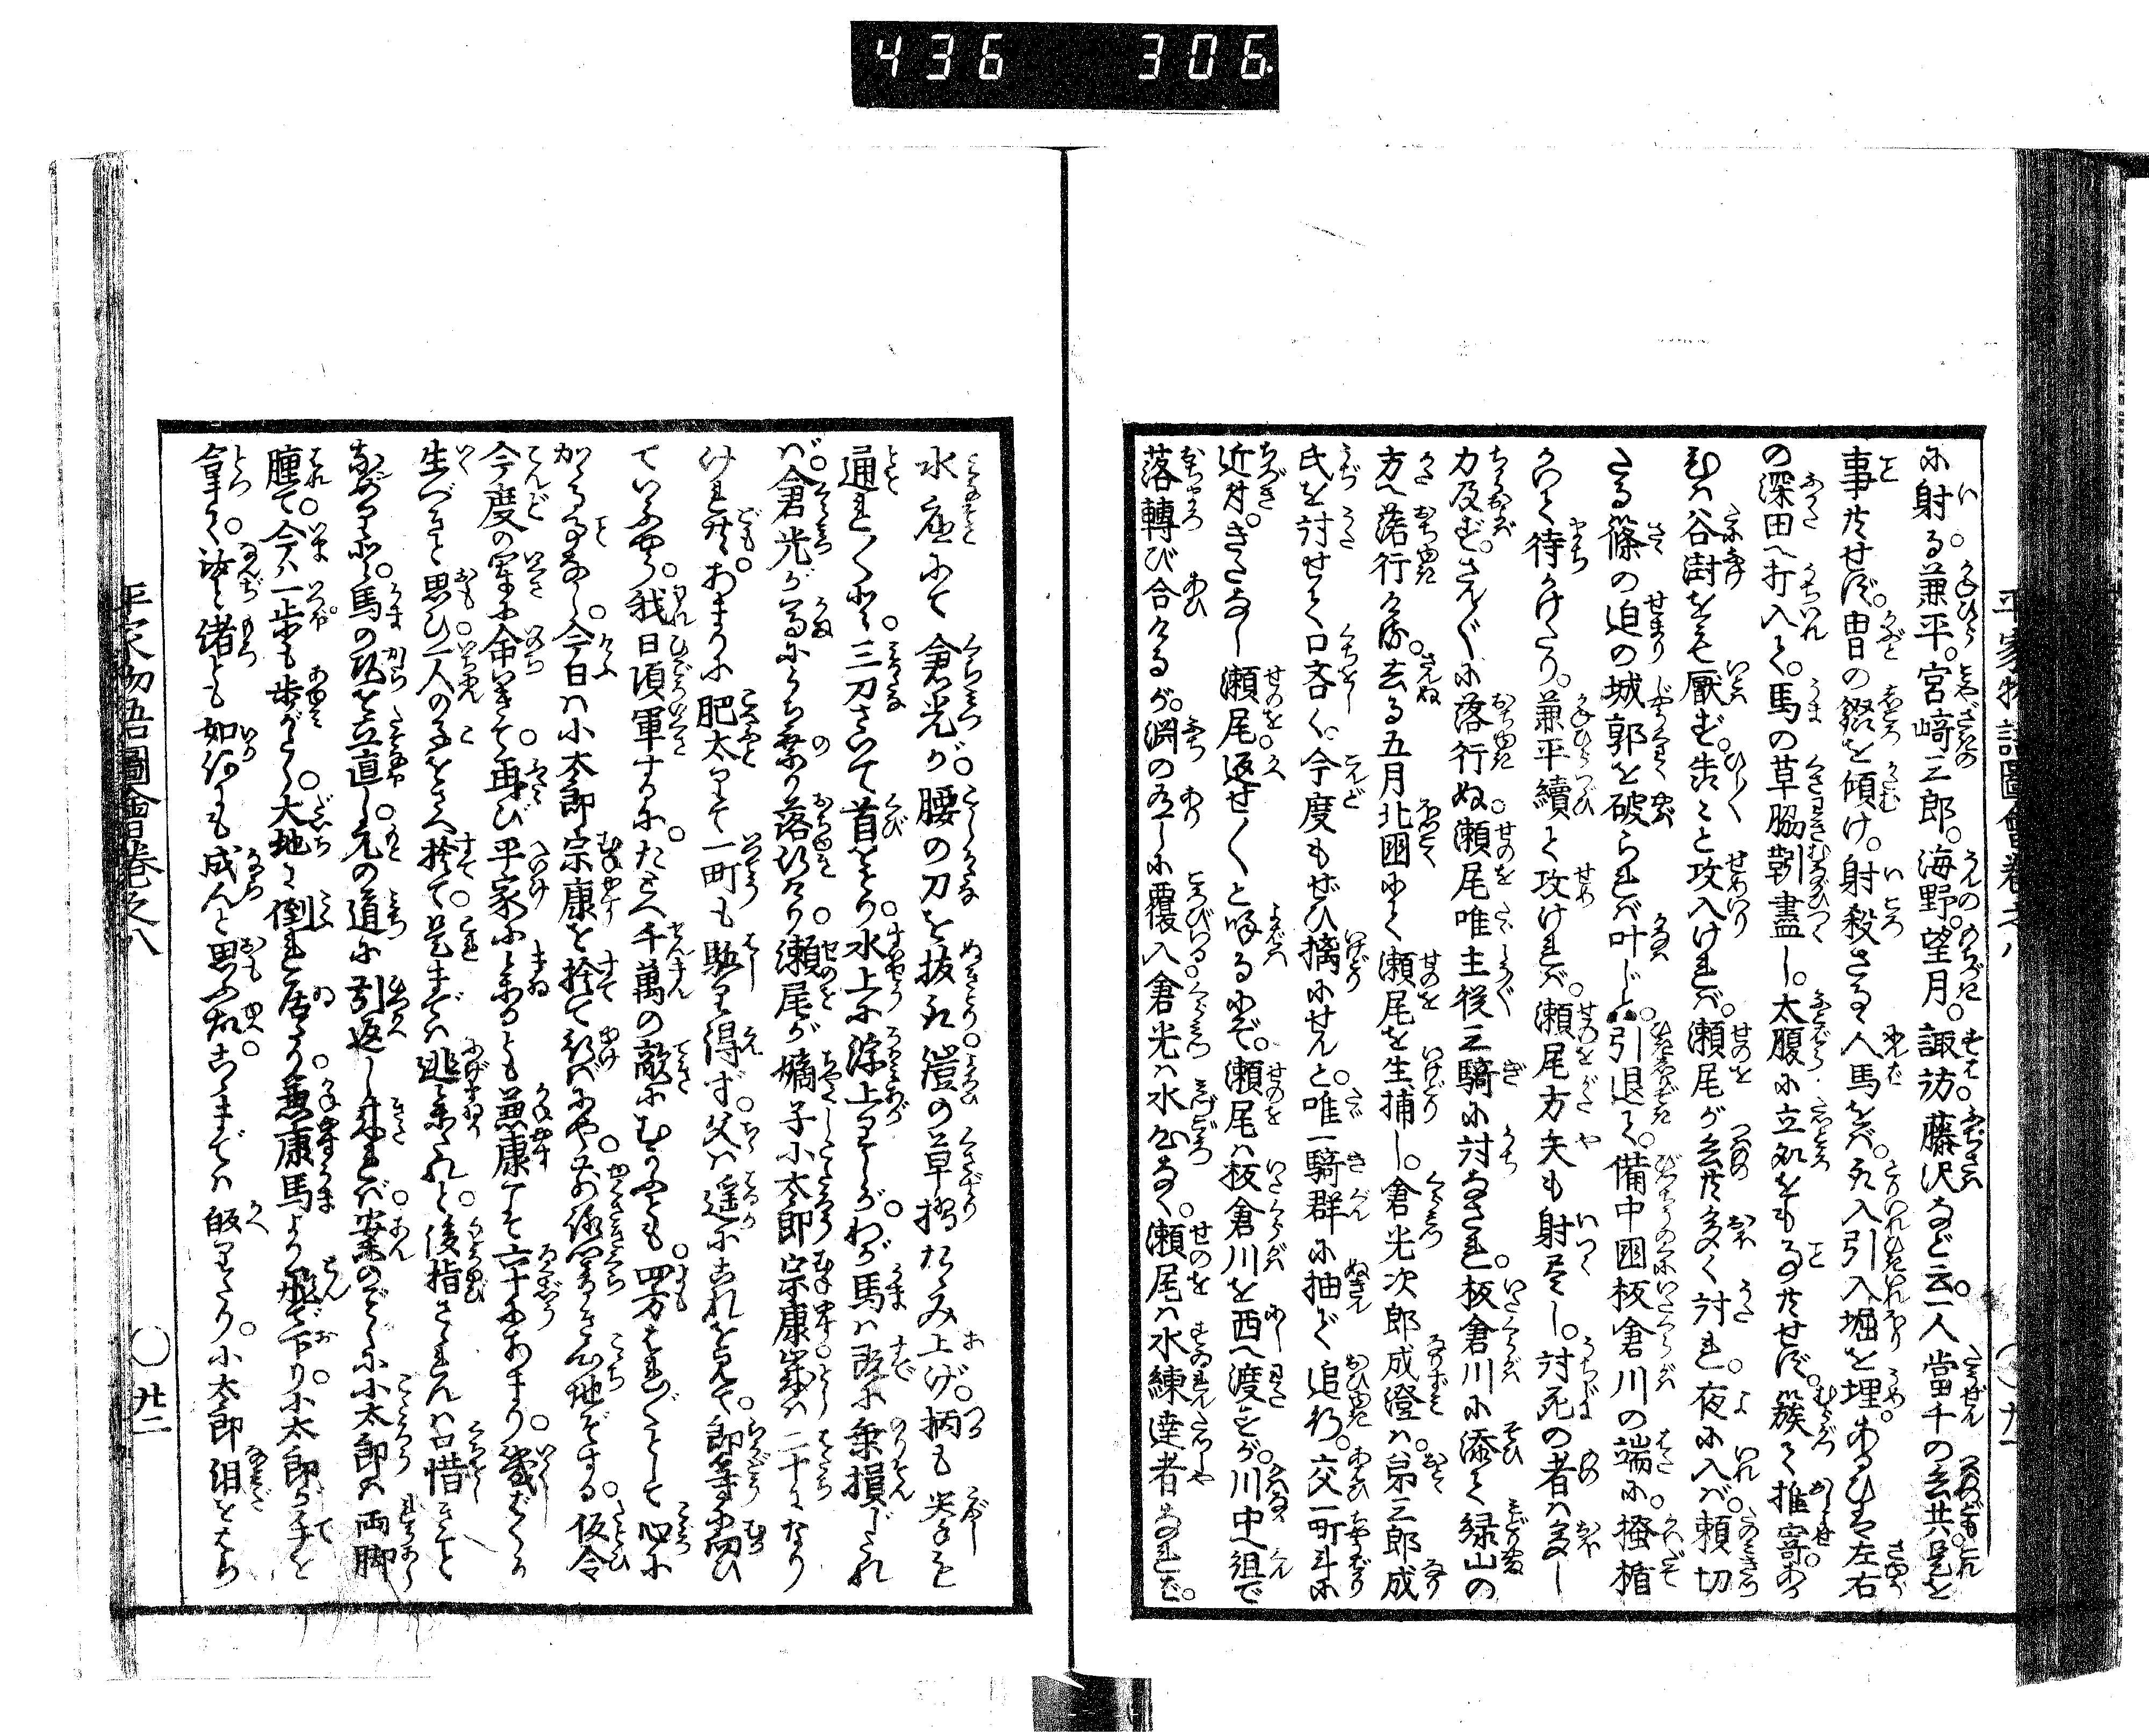 436 306
平家物語圖會卷之八 〇廿一
に射る。兼平。宮﨑三郎。海野。望月。諏訪。藤沢など云。一人當千の兵共。是を
事共せず。甲の錣を傾け。射殺さるゝ人馬をバ。取入引入堀を埋。あるひは左右
の深田へ打入て。馬の草脇鞅盡し。太腹に立処をもる事共せず。簇て推寄。あ
るひハ谷澍をも厭ず。喚々と攻入けれバ。瀬尾が兵共多く討れ。夜に入バ。頼切
たる篠の迫の城郭を破られバ叶じと。引退て。備中国板倉川の端に。掻楯
かいて待かけたり。兼平續て攻けれバ。瀬尾方矢も射尽し。討死の者ハ多し
力及ず。さん〲に落行ぬ。瀬尾唯主従三騎に討なされ。板倉川に添て緑山の
方へ落行ける。去る五月北国にて瀬尾を生捕し。倉光次郎成澄ハ。弟三郎成
氏を討せて口吝く。今度もぜひ擒にせんと。唯一騎群に抽で追行。交一町斗に
近付。きたなし瀬尾返せ〳〵と呼るにぞ。瀬尾ハ板倉川を西へ渡せしが。川中へ組で
落轉び合けるが。渕の有しに覆入倉光ハ水心なく。瀬尾ハ水練達者なれバ。
水底にて倉光が。腰の刀を抜取。鎧の草摺たゝみ上げ。柄も拳も
通れ〳〵と。三刀さいて首をとり。水上に浮上りしが。わが馬ハ既に乗損じたれ
バ。倉光が馬にうち乗り落行たり。瀬尾が嫡子小太郎宗康歳ハ二十になり
けれ共。あまりに肥太りて一町も駈り得ず。父ハ遥にこれを見て。郎等に向ひ
ていふやう。我日頃軍するに。たとへ千萬の敵にむかふとも。四方はれ〲として心に
かゝる事なし。今日ハ小太郎宗康を捨て行バにや。前後闇き心地ぞする。仮令
今度の軍に命いきて。再び平家に参るとも。兼康こそ六十にあまり。幾ばくか
生べきと思ひ。一人の子をさへ捨て。是までハ逃参たれと。後指さゝれんハ口惜きと
あざわらひ。馬の頭を立直し。元の道に引返し来れバ。案のごとく小太郎ハ両脚
腫て。今ハ一歩も歩がたく。大地に倒れ居たり。兼康馬より飛で下り。小太郎が手を
拿て。汝と諸とも如何にも成んと思ふ故。こゝまでハ皈りたり。小太郎泪をはら
平家物語圖會卷之八 〇廿二